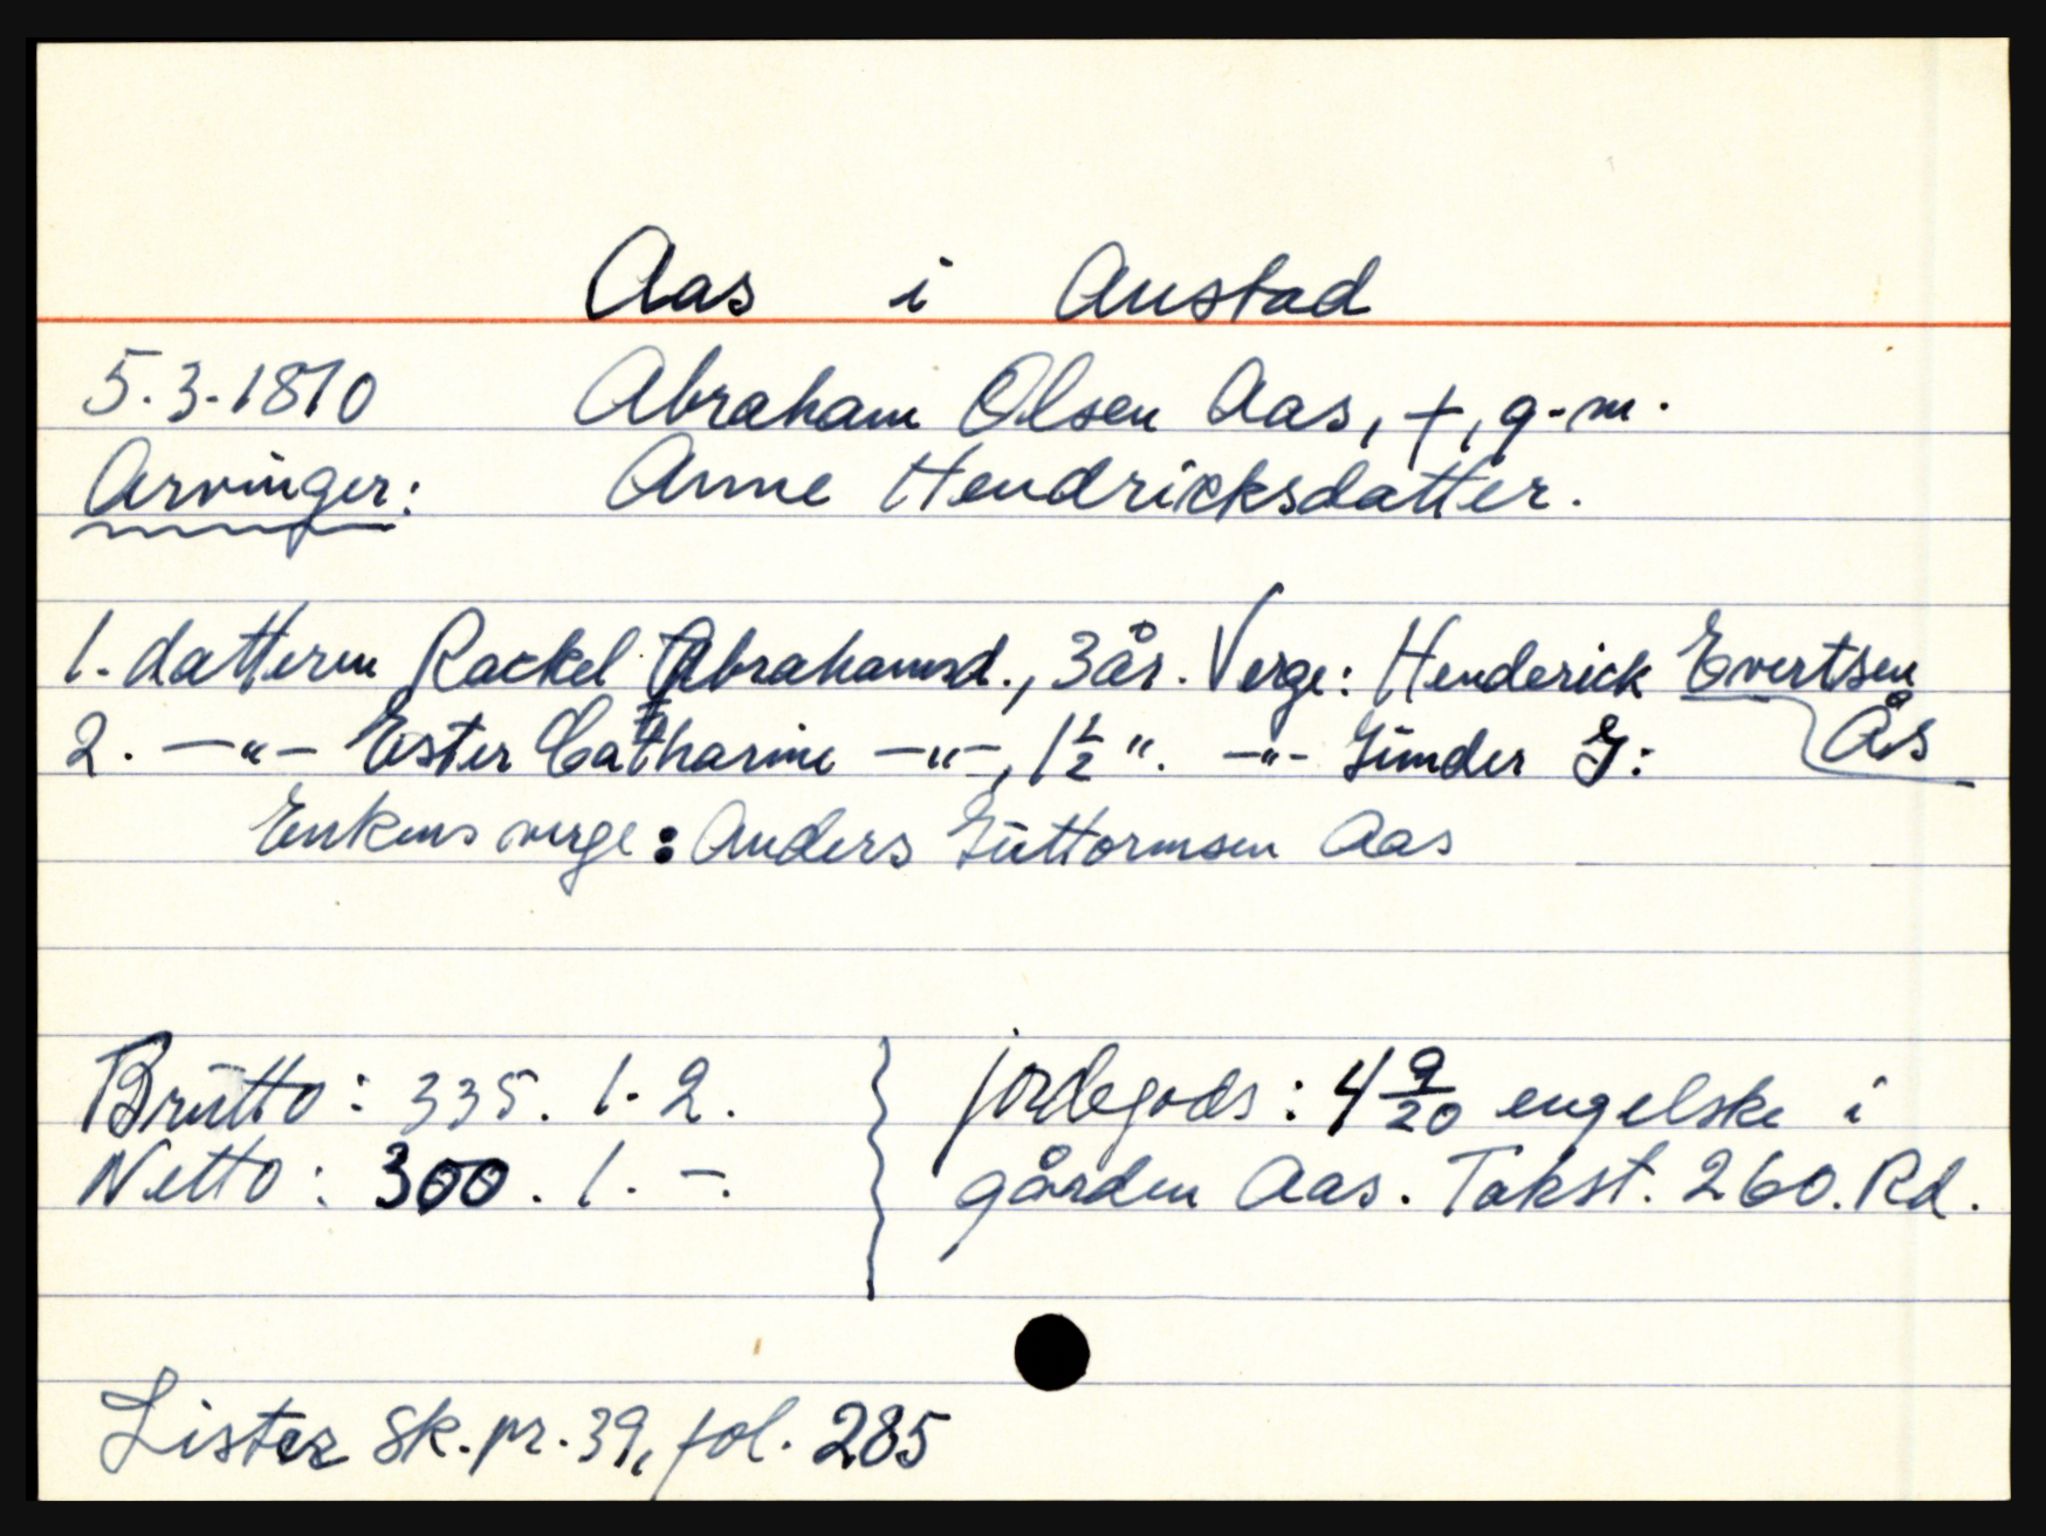 Aas i Austad
5.3.1810 Abraham Olsen Aas, +, g.m.
Arvinger: Anne Hendricksdatter.
1. datteren Rackel Abrahamsd., 3 år. Verge: Henderick Evertsen
2. —"— Ester Catharine —"—, 1½ ". —"— Gunder G: Ås
Enkens verge: Anders Guttormsen Aas
Brutto: 335. 1. 2. jordegods: 4 9/20 engelske i
Netto: 300. 1. —. gården Aas. Takst. 260. Rd.
Lister sk.pr. 39, fol. 285